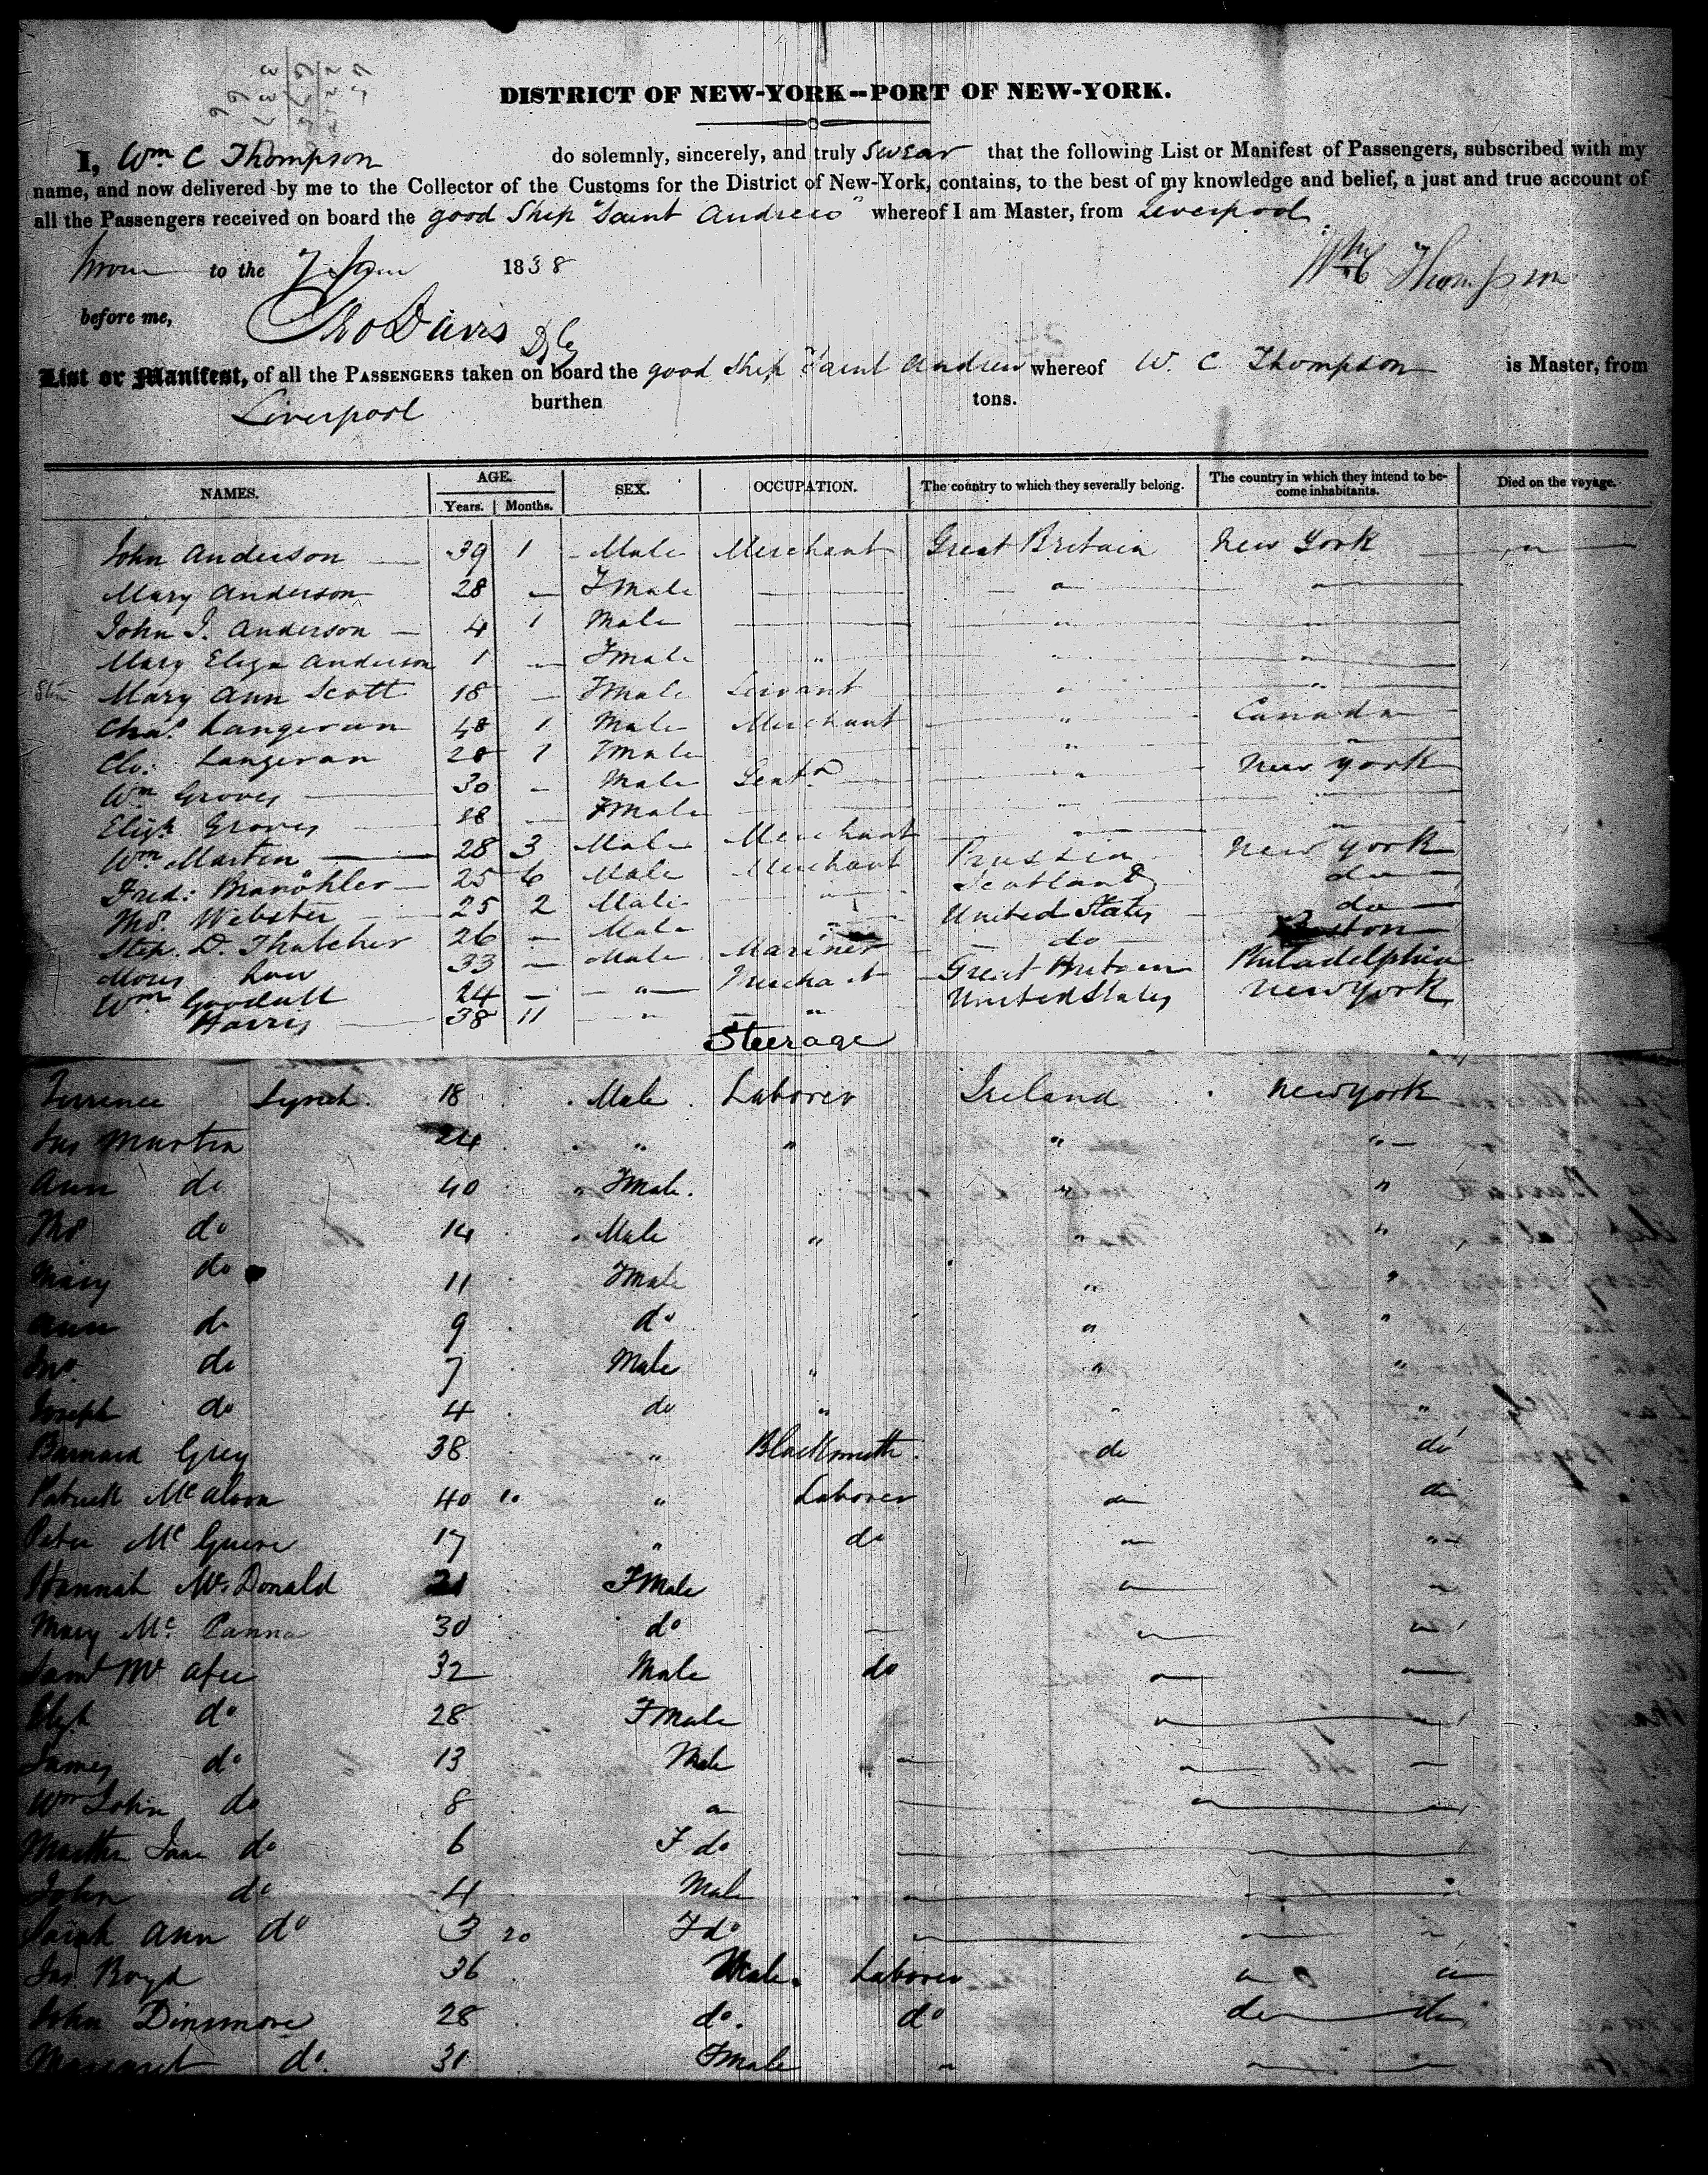 DISTRICT OF NEW-YORK--PORT OF NEW-YORK.
I, Wm C Thompson do solemnly, sincerely, and truly Swear that the following List or Manifest of Passengers, subscribed with my
name, and now delivered by me to the Collector of the Customs for the District of New-York, contains, to the best of my knowledge and belief, a just and true account of
all the Passengers received on board the good Ship "Saint Andrew" whereof I am Master, from Liverpool
to the 7 Jan 1838 Wm C Thompson
before me, Tho Davis
List or Manifest, of all the PASSENGERS taken on board the good Ship Saint Andrew whereof W. C Thompson is Master, from
Liverpool burthen tons.
NAMES. AGE. SEX. OCCUPATION. The country to which they severally belong. The country in which they intend to be-come inhabitants. Died on the voyage.
Years. Months.
John Anderson 39 1 Male Merchant Great Britain New York "
Mary Anderson 28 — FMale " "
John J. Anderson 4 1 Male " "
Mary Eliza Anderson 1 — FMale " " "
Mary Ann Scott 18 — FMale Servant " "
Chas. Langevan 48 1 Male Merchant " Canada
Clo: Langevan 28 1 FMale " "
Wm Groves 30 — Male Gentn " New York
Elizh Groves 18 — FMale " "
Wm Martin 28 3 Male Merchant "
Fred: 25 6 Male Merchant Prussia New York
Thos. Webster 25 2 Male " Scotland do
Step. D. Thatcher 26 — Male " United States do
Moses Low 33 — Male Mariner do Boston
Wm Goodall 24 — " Merchant Great Britain Philadelphia
Harris 38 11 " " United States New York
Steerage
Terrence Lynch 18 Male Laborer Ireland New York
Jas Martin 24 " " " "
Ann do 40 FMale " "
Thos do 14 Male " " "
Mary do 11 FMale " "
Ann do 9 do " "
Jno. do 7 Male " " "
Joseph do 4 do " " "
Barnard Grey 38 " Blacksmith do do
Patrick McAloon 40 10 " Laborer do do
Peter McGuire 17 " do " "
Hannah McDonald 21 FMale " "
Mary Mc. Canna 30 do — " "
Saml McAfee 32 Male do " "
Elizh do 28 FMale " "
James do 13 Male " " "
Wm John do 8 " " "
Martha Jane do 6 F do
John do 4 Male " " "
Sarah Ann do 3 20 F do " " "
Jas Boyd 36 Male Laborer " "
John Dinsmore 28 do. do do do
Margaret do. 31 FMale " " "